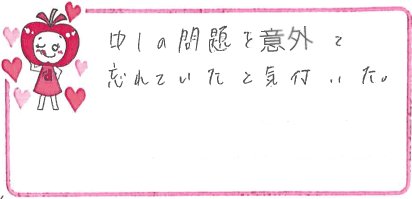 中1の問題を意外と
忘れていたと気付いた。